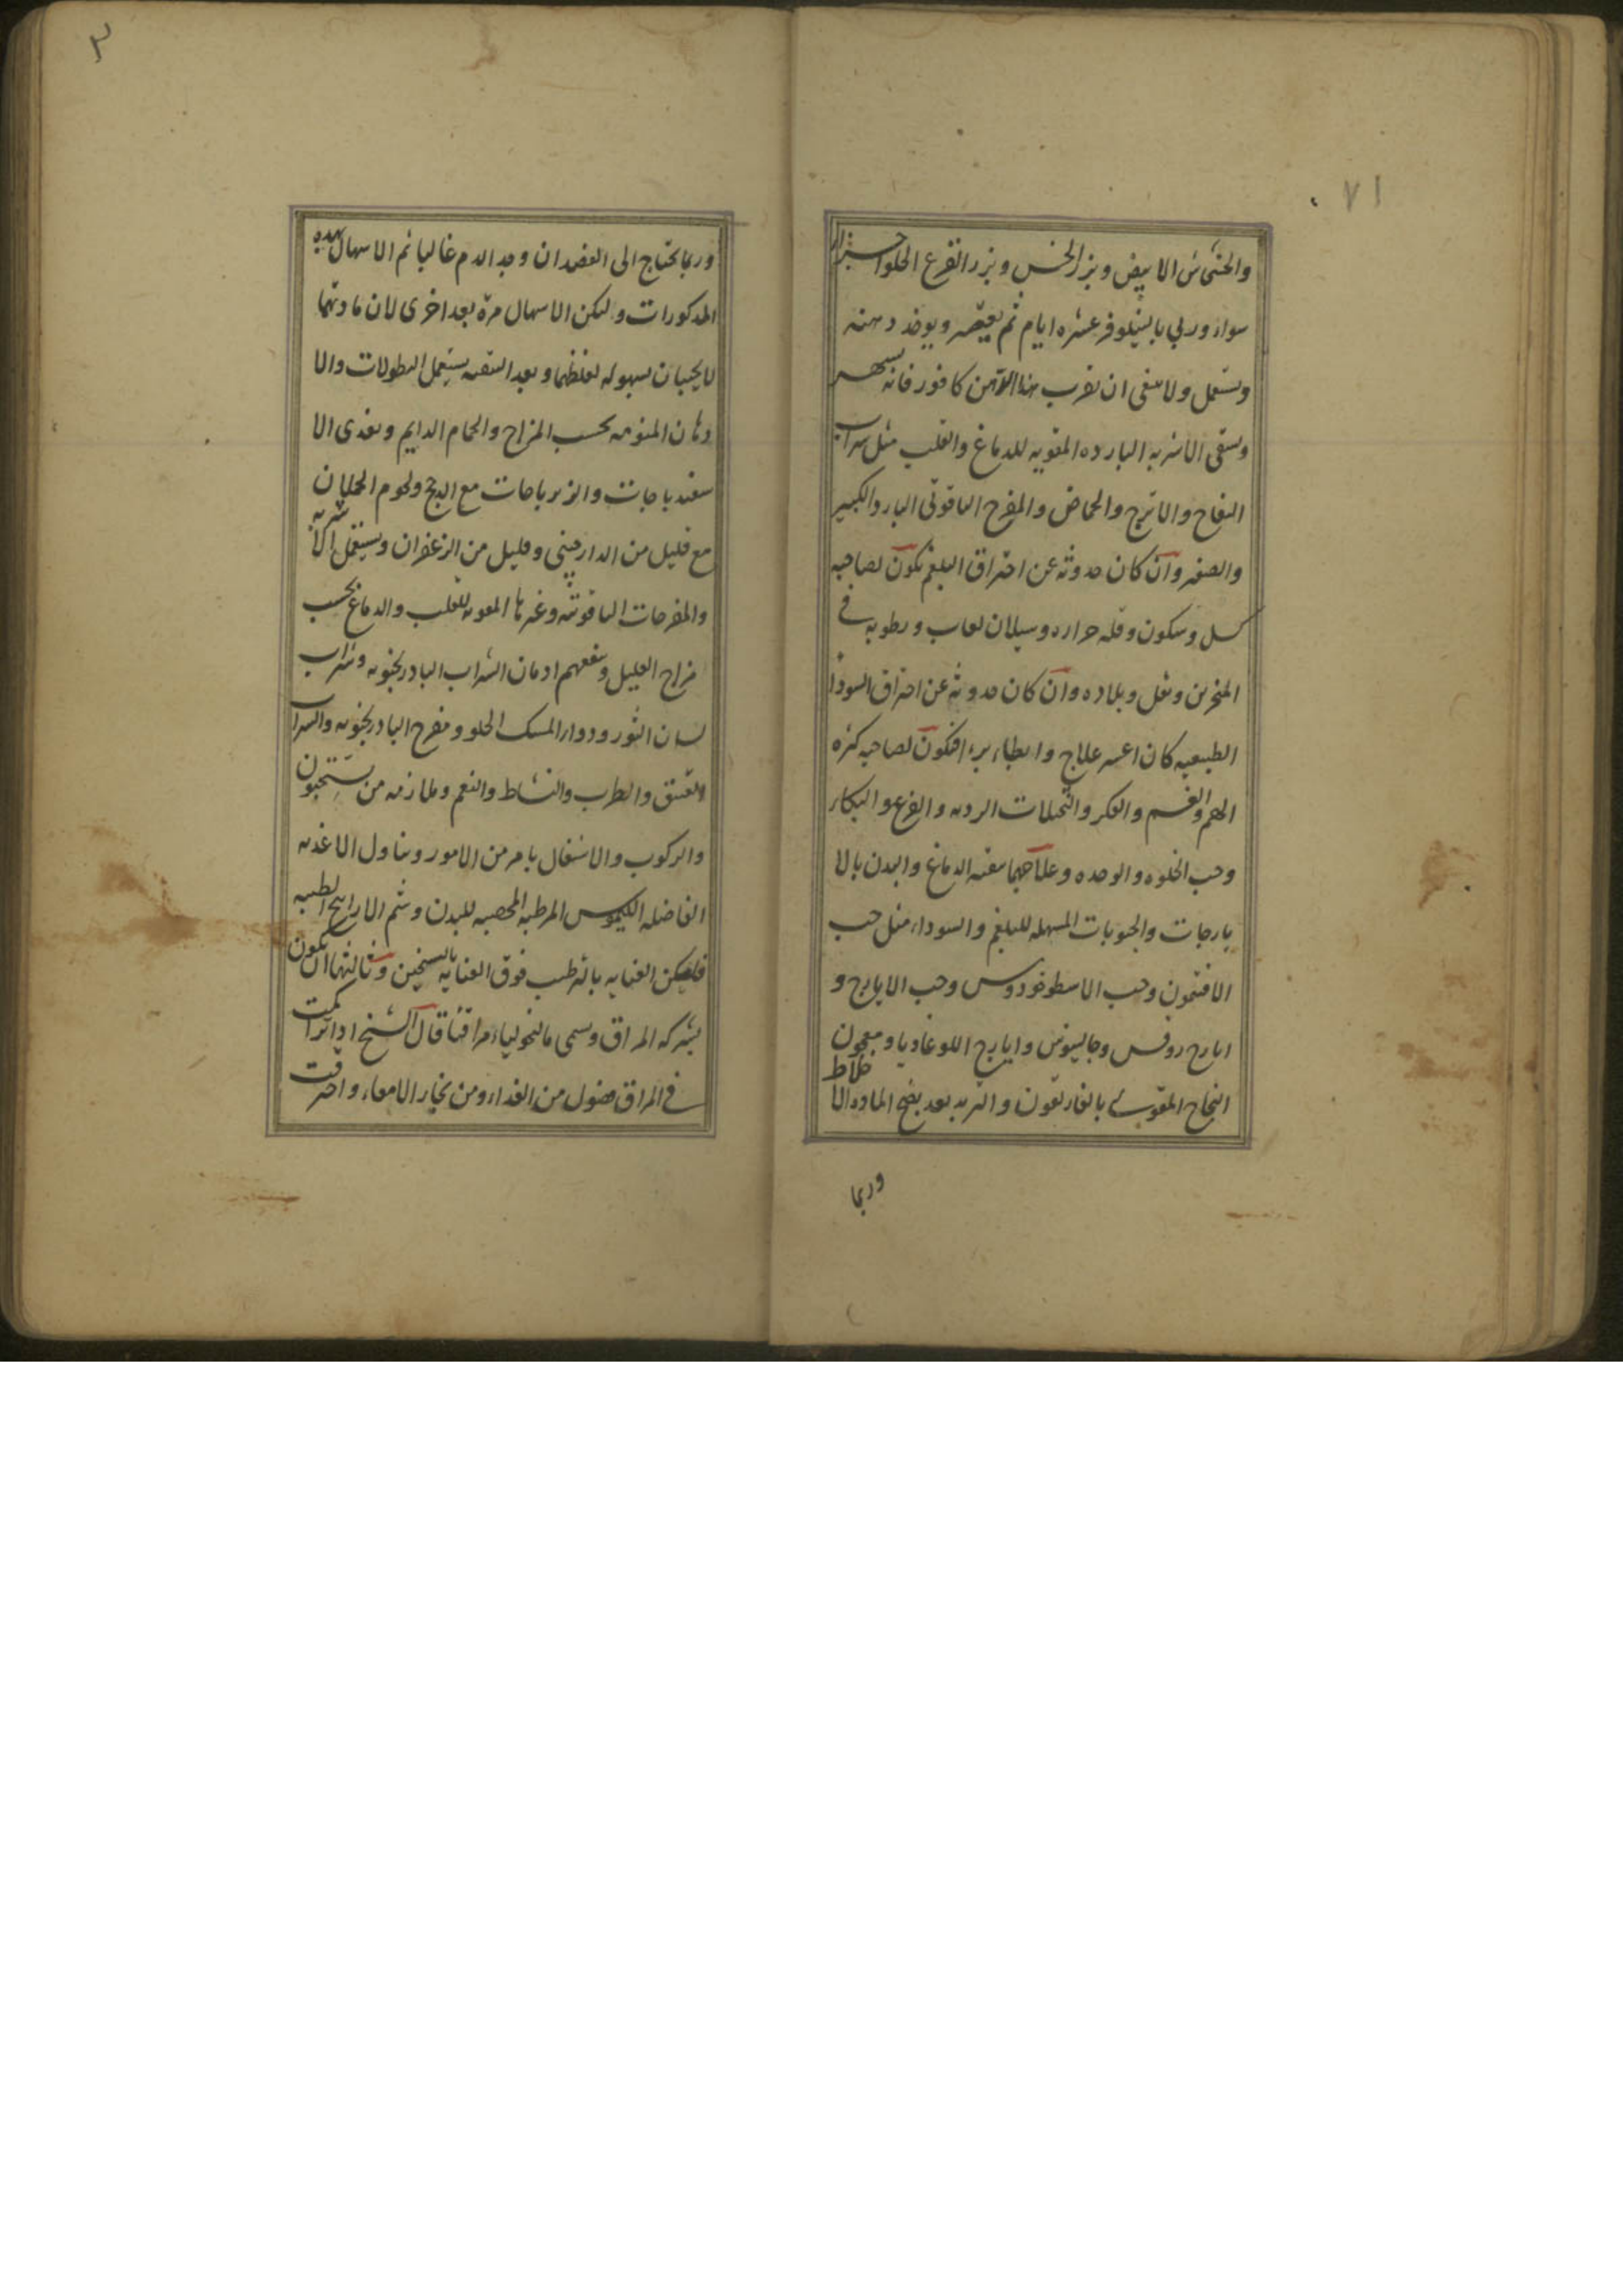 ٧١
والخشخاش الابيض وبزر الخس وبزر القرع الحلو اجزاء
سواء وربي بالنيلوفر عشره ايام ثم يعتصر ويوخذ دهنه
ويستعمل ولا ينبغى ان يقرب هذا الدهن كافور فانه يسهر
ويسقى الاشربه البارده المقويه للدماغ والقلب مثل شراب
التفاح والاترج والحماض والمفرح الياقوتى البارد الكبير
والصغير وان كان حدوثه عن احتراق البلغم يكون لصاحبه
كسل وسكون وقله حراره وسيلان لعاب ورطوبه فى
المنخرين وثقل وبلاده وان كان حدوثه عن احتراق السودا
الطبيعيه كان اعسر علاج وابطاء برءا فيكون لصاحبه كثره
الهم والغم والفكر والتخيلات الرديه والفزع والبكاء
وحب الخلوه والوحده وعلاجهما تنقيه الدماغ والبدن بالا
يارجات والحبوبات المسهله للبلغم والسوداء مثل حب
الافتيمون وحب الاسطوخودوس وحب الايارج و
ايارج روفس وجالينوس وايارج اللوغاديا ومعجون
النجاح المقوى بالغاريقون والتربد بعد نضج الماده الا خلاط
وربما
٣
وربما يحتاج الى الفصد ان وجد الدم غالبا ثم الاسهال بهذه
المذكورات وليكن الاسهال مرة بعد اخرى لان مادتهما
لا يجيبان بسهوله لغلظهما وبعد التنقيه يستعمل النطولات والا
دهان المنومه بحسب المزاج والحمام الدايم ويغذى الا
سفيدباجات والزيرباجات مع الدجج ولحوم الحملان
مع قليل من الدارچينى وقليل من الزعفران ويستعمل الاشربه
والمفرحات الياقوتيه وغيرها المقويه للقلب والدماغ بحسب
مزاج العليل وينفعهم ادمان الشراب البادرنجبويه وشراب
لسان الثور ودواء المسك الحلو ومفرح البادرنجبويه والشراب
العتيق والطرب والنشاط والنغم وملازمه من يستحبون
والركوب والاشتغال بامر من الامور وتناول الاغذيه
الفاضله الكيموس المرطبه المخصبه للبدن وشم الاراييح الطيبه
فليكن العنايه بالترطيب فوق العنايه بالتسخين وثالثها ان يكون
بشركه المراق ويسمى مالنخولياء مراقيا قال الشيخ اذا تراكمت
فى المراق فضول من الغذاء ومن بخار الامعاء واحترقت